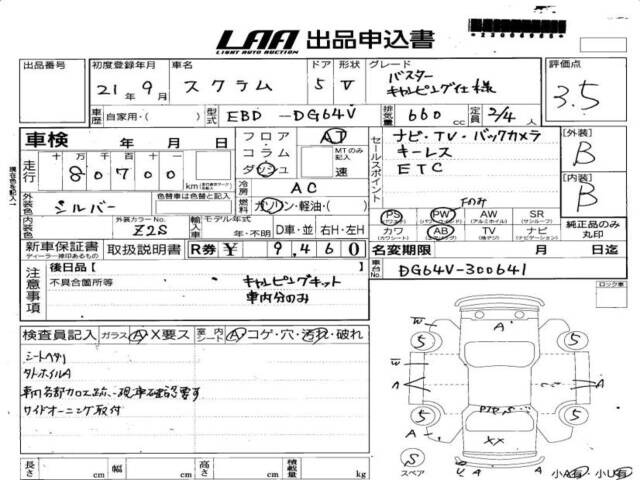 LAA 出品申込書
LIGHT AUTO AUCTION
出品番号 初度登録年月 車名 ドア 形状 グレード 評価点
21年9月 スクラム 5 V バスター 3.5
キャンピング仕様
車歴 自家用・( ) 型式 EBD-DG64V 排気量 660cc 定員 2/4人
車検 年 月 日 フロア AT ナビ・TV・バックカメラ [外装]
走行 十万 万 千 百 十 一 コラム MTのみ記入 セールスポイント キーレス B
80700 km ダッシュ 速 ETC [内装]
冷房 AC B
外装色 シルバー 色替車は色替と記入 燃料 ガソリン・軽油・( ) PS PW AW SR 純正品のみ丸印
内装色 外装カラーNo. Z2S 輸入車 モデル年式 年・不明 D車・並 右H・左H カワ AB TV ナビ
新車保証書 取扱説明書 R券 ¥9,460 名変期限 月 日迄
ディーラー捺印あるもの
車台No. DG64V-300641
注意事項 後日品[ ]
不具合箇所等 キャンピングキット
車内分のみ
ロック車
検査員記入 ガラス A・X要ス 室内シート A コゲ・穴・汚れ・破れ
シートヘタリ
タテホイルA
車内各部加工跡、現車確認要す
ワイドオーニング取付
長さ cm 幅 cm 高さ cm 積載量 kg
A
W
5 5
W
A A A
5 5
A
XX
S
スペア
U A A A 小A有・小U有